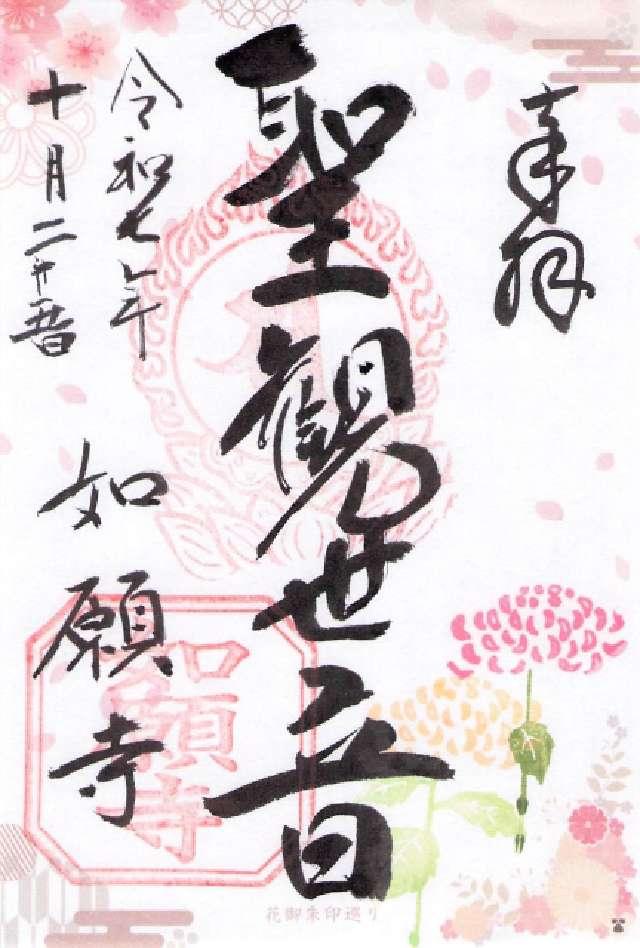 奉拝
聖観世音
令和七年
十月二十五日
如願寺
如願寺
花御朱印巡り